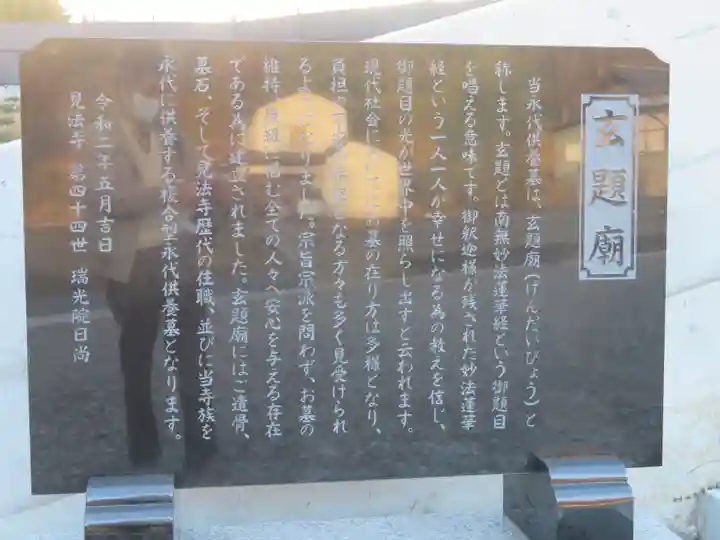 玄題廟
当永代供養墓は、玄題廟(けんだいびょう)と
称します。玄題とは南無妙法蓮華経という御題目
を唱える意味です。御釈迦様が残された妙法蓮華
経という一人一人が幸せになる為の教えを信じ、
御題目の光が世界中を照らし出すと云われます。
現代社会においてお墓の在り方は多様となり、
負担 となる方々も多く見受けられ
るようになりました。宗旨宗派を問わず、お墓の
維持、後継に悩む全ての人々へ安心を与える存在
である為に建立されました。玄題廟にはご遺骨、
墓石、そして見法寺歴代の住職、並びに当寺族を
永代に供養する複合型永代供養墓となります。
令和二年五月吉日
見法寺 第四十四世 瑞光院日尚